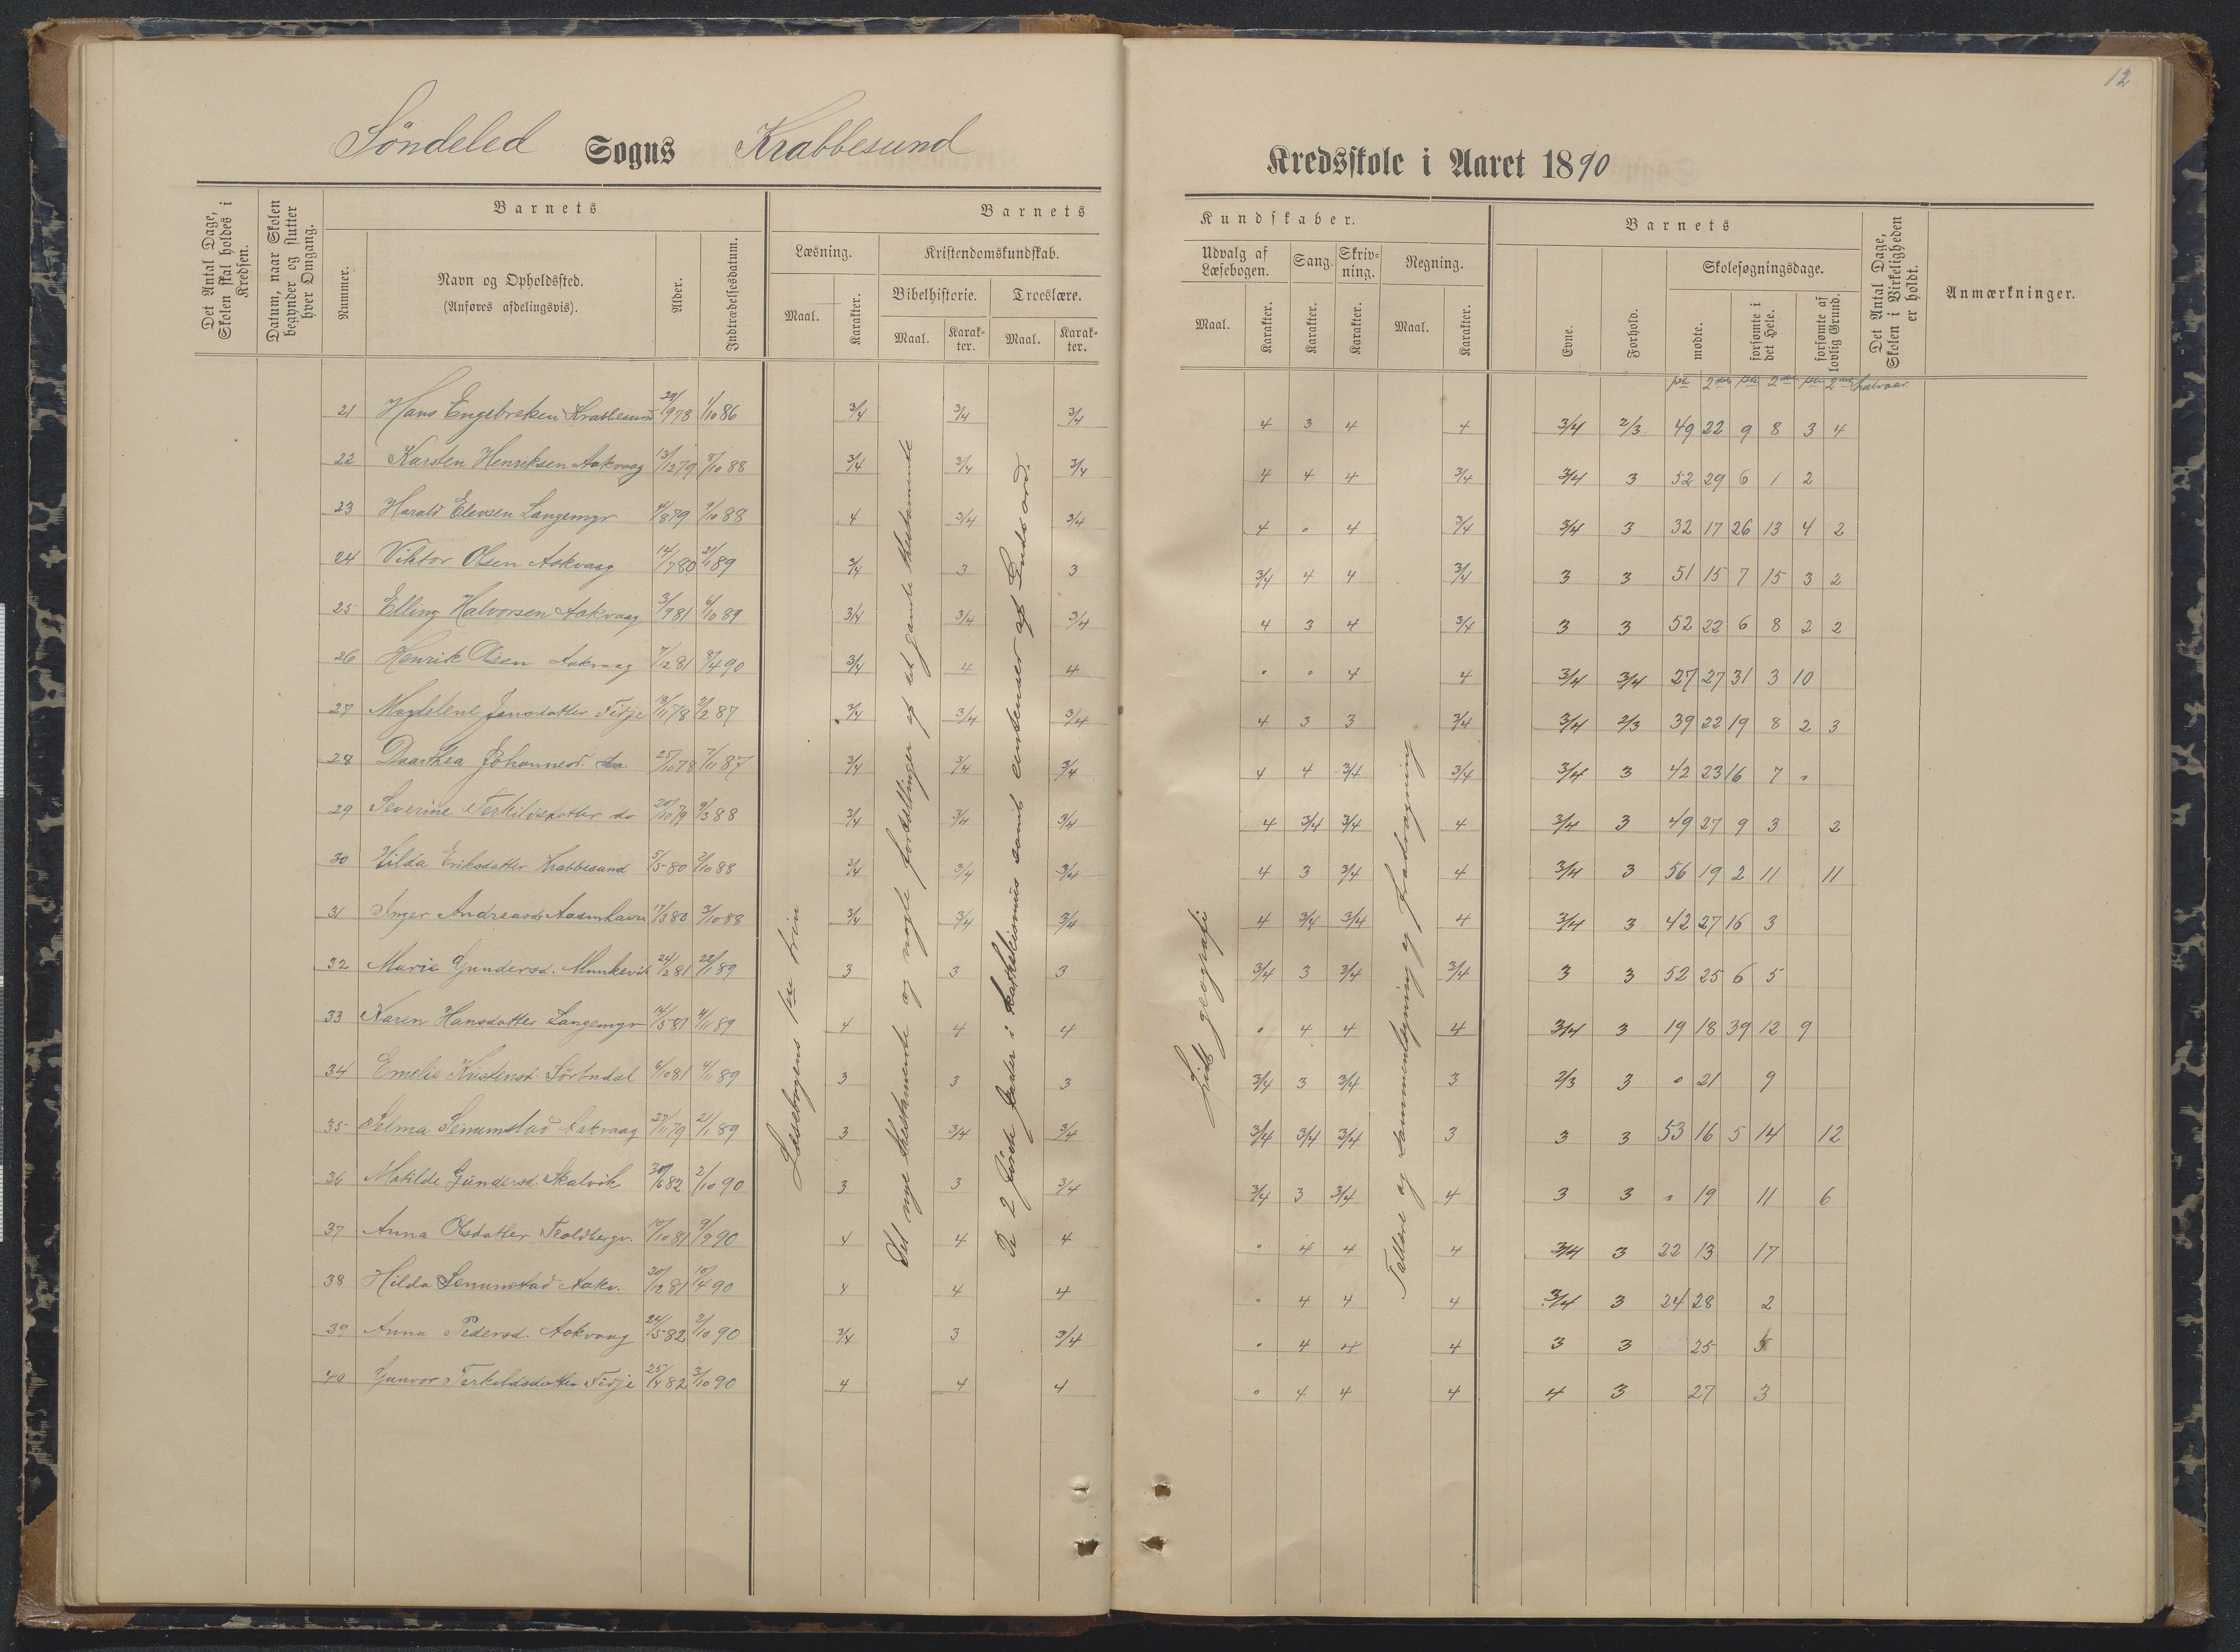 12
Söndeled Sogns Krabbesund Kredsskole i Aaret 1890
Det Antal Dage, Skolen skal holdes i Kredsen.
Datum, naar Skolen begynder og slutter hver Omgang.
Barnets
Nummer.
Navn og Opholdssted.
(Anføres afdelingsvis).
Alder.
Indtrædelsesdatum.
Barnets
Læsning.
Maal.
Karakter.
Kristendomskundskab.
Bibelhistorie.
Troeslære.
Maal.
Karakter.
Maal.
Karakter.
Kundskaber.
Udvalg af Læsebogen.
Sang.
Skrivning.
Regning.
Maal.
Karakter.
Karakter.
Karakter.
Maal.
Karakter.
Barnets
Evne.
Forhold.
Skolesøgningsdage.
mødte.
forsømte i det Hele.
forsømte af lovlig Grund.
Det Antal Dage, Skolen i Virkeligheden er holdt.
Anmærkninger.
1ste 2det 1ste 2det 1ste 2det halvaar
21 Hans Engebretsen Krabbesund 29/9 78 1/10 86 3/4 3/4 3/4 4 3 4 4 3/4 2/3 49 22 9 8 3 4
22 Karsten Henriksen Aakvaag 13/12 79 8/10 88 3/4 3/4 3/4 4 4 4 3/4 3/4 3 52 29 6 1 2
23 Harald Elevsen Langemyr 4/8 79 9/10 88 4 3/4 3/4 4 " 4 3/4 3/4 3 32 17 26 13 4 2
24 Viktor Olsen Aakvaag 14/7 80 21/1 89 3/4 3 3 3/4 4 4 3/4 3 3 51 15 7 15 3 2
25 Elling Halvorsen Aakvaag 3/9 81 6/10 89 3/4 3/4 3/4 4 3 4 3/4 3 3 52 22 6 8 2 2
26 Henrik Olsen Aakvaag 7/12 81 8/4 90 3/4 4 4 " " 4 4 3/4 3/4 27 27 31 3 10
27 Magdelene Jensdatter Fidje 13/11 78 2/2 87 3/4 3/4 3/4 4 3 3 3/4 3/4 2/3 39 22 19 8 2 3
28 Daarthea Johannesd. do 25/10 78 7/11 87 3/4 3/4 3/4 4 4 3/4 3/4 3/4 3 42 23 16 7 "
29 Severine Terkildsdatter do 20/10 79 9/3 88 3/4 3/4 3/4 4 3/4 3/4 4 3/4 3 49 27 9 3 2
30 Hilda Eriksdatter Krabbesund 5/5 80 2/10 88 3/4 3/4 3/4 4 3 3/4 4 3/4 3 56 19 2 11 11
31 Inger Andreasd. Aasmhavn 17/3 80 3/10 88 3/4 3/4 3/4 4 3/4 3/4 4 3/4 3 42 27 16 3
32 Marie Gundersd. Munkevik 24/2 81 22/1 89 3 3 3 3/4 3 3/4 3/4 3 3 52 25 6 5
33 Karen Hansdatter Langemyr 14/5 81 4/11 89 4 4 4 " 4 4 4 3/4 3 19 18 39 12 9
34 Emelie Kristensd. 6/10 81 4/11 89 3 3 3 3/4 3 3/4 3 2/3 3 " 21 9
35 Selma Senumstad Aakvaag 27/11 79 21/1 89 3 3/4 3/4 3/4 3/4 3/4 3 3 3 53 16 5 14 12
36 Matilde Gundersd. Skalvik 30/6 82 2/10 90 3 3 3/4 3/4 3 3/4 4 3 3 " 19 11 6
37 Anna Olsdatter Troldbergv. 10/10 81 9/9 90 4 4 4 " 4 4 4 3/4 3 22 13 17
38 Hilda Senumstad Aakv. 30/12 81 10/4 90 4 4 4 " 4 4 4 3/4 3 24 28 2
39 Anna Pedersd. Aakvaag 24/5 82 2/10 90 3/4 3 3/4 " 4 4 4 3 3 25 5
40 Gunvor Terkildsdatter Fidje 25/4 82 3/10 90 4 4 4 " 4 4 4 4 3 27 3
Læsebogens 1ste trin
Det nye thestamente og nogle fortællinger af det gamle thestamente
De 2 første parter i kathekismus samt enkender af Guds ord.
Lidt geografi
Tallære og sammenlegning og fradragning